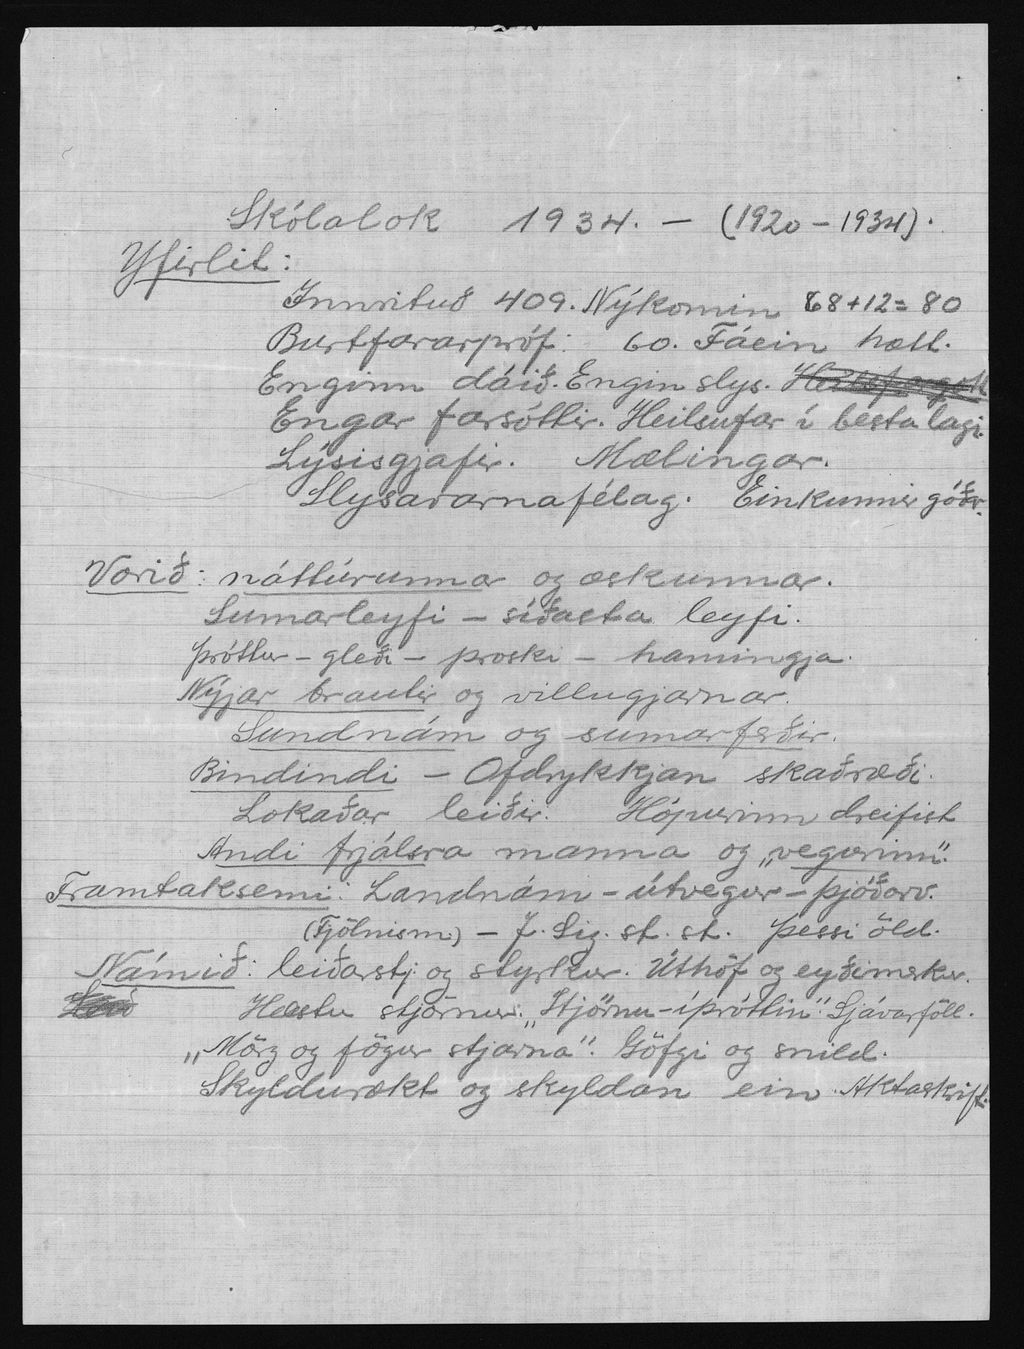 Skólalok 1934. — (1920 – 1934).
Yfirlit:
Innrituð 409. Nýkomin 68+12=80
Burtfararpróf: 60. Fáein hætt.
Enginn dáið. Engin slys.
Engar farsóttir. Heilsufar í besta lagi.
Lýsisgjafir. Mælingar.
Slysavarnafélag. Einkunnir góðr.
Vorið: náttúrunnar og æskunnar.
Sumarleyfi – síðasta leyfi.
Þróttur – gleði – þroski – hamingja.
Nýjar brautir og villugjarnar.
Sundnám og sumarferðir.
Bindindi – Ofdrykkjan skaðræði.
Lokaðar leiðir. Hópurinn dreifist
Andi frjálsra manna og „vegurinn".
Framtaksemi: Landnám – útvegur – þjóðarv.
(Fjölnism) – J. Sig. st. st. Þessi öld.
Námið: leiðarstj. og styrkur. Úthöf og eyðimerkur.
Hæstu stjörnur: „Stjörnu-íþróttin". Sjávarföll.
„Mörg og fögur stjarna". Göfgi og snild.
Skyldurækt og skyldan ein. Aktaskrift.